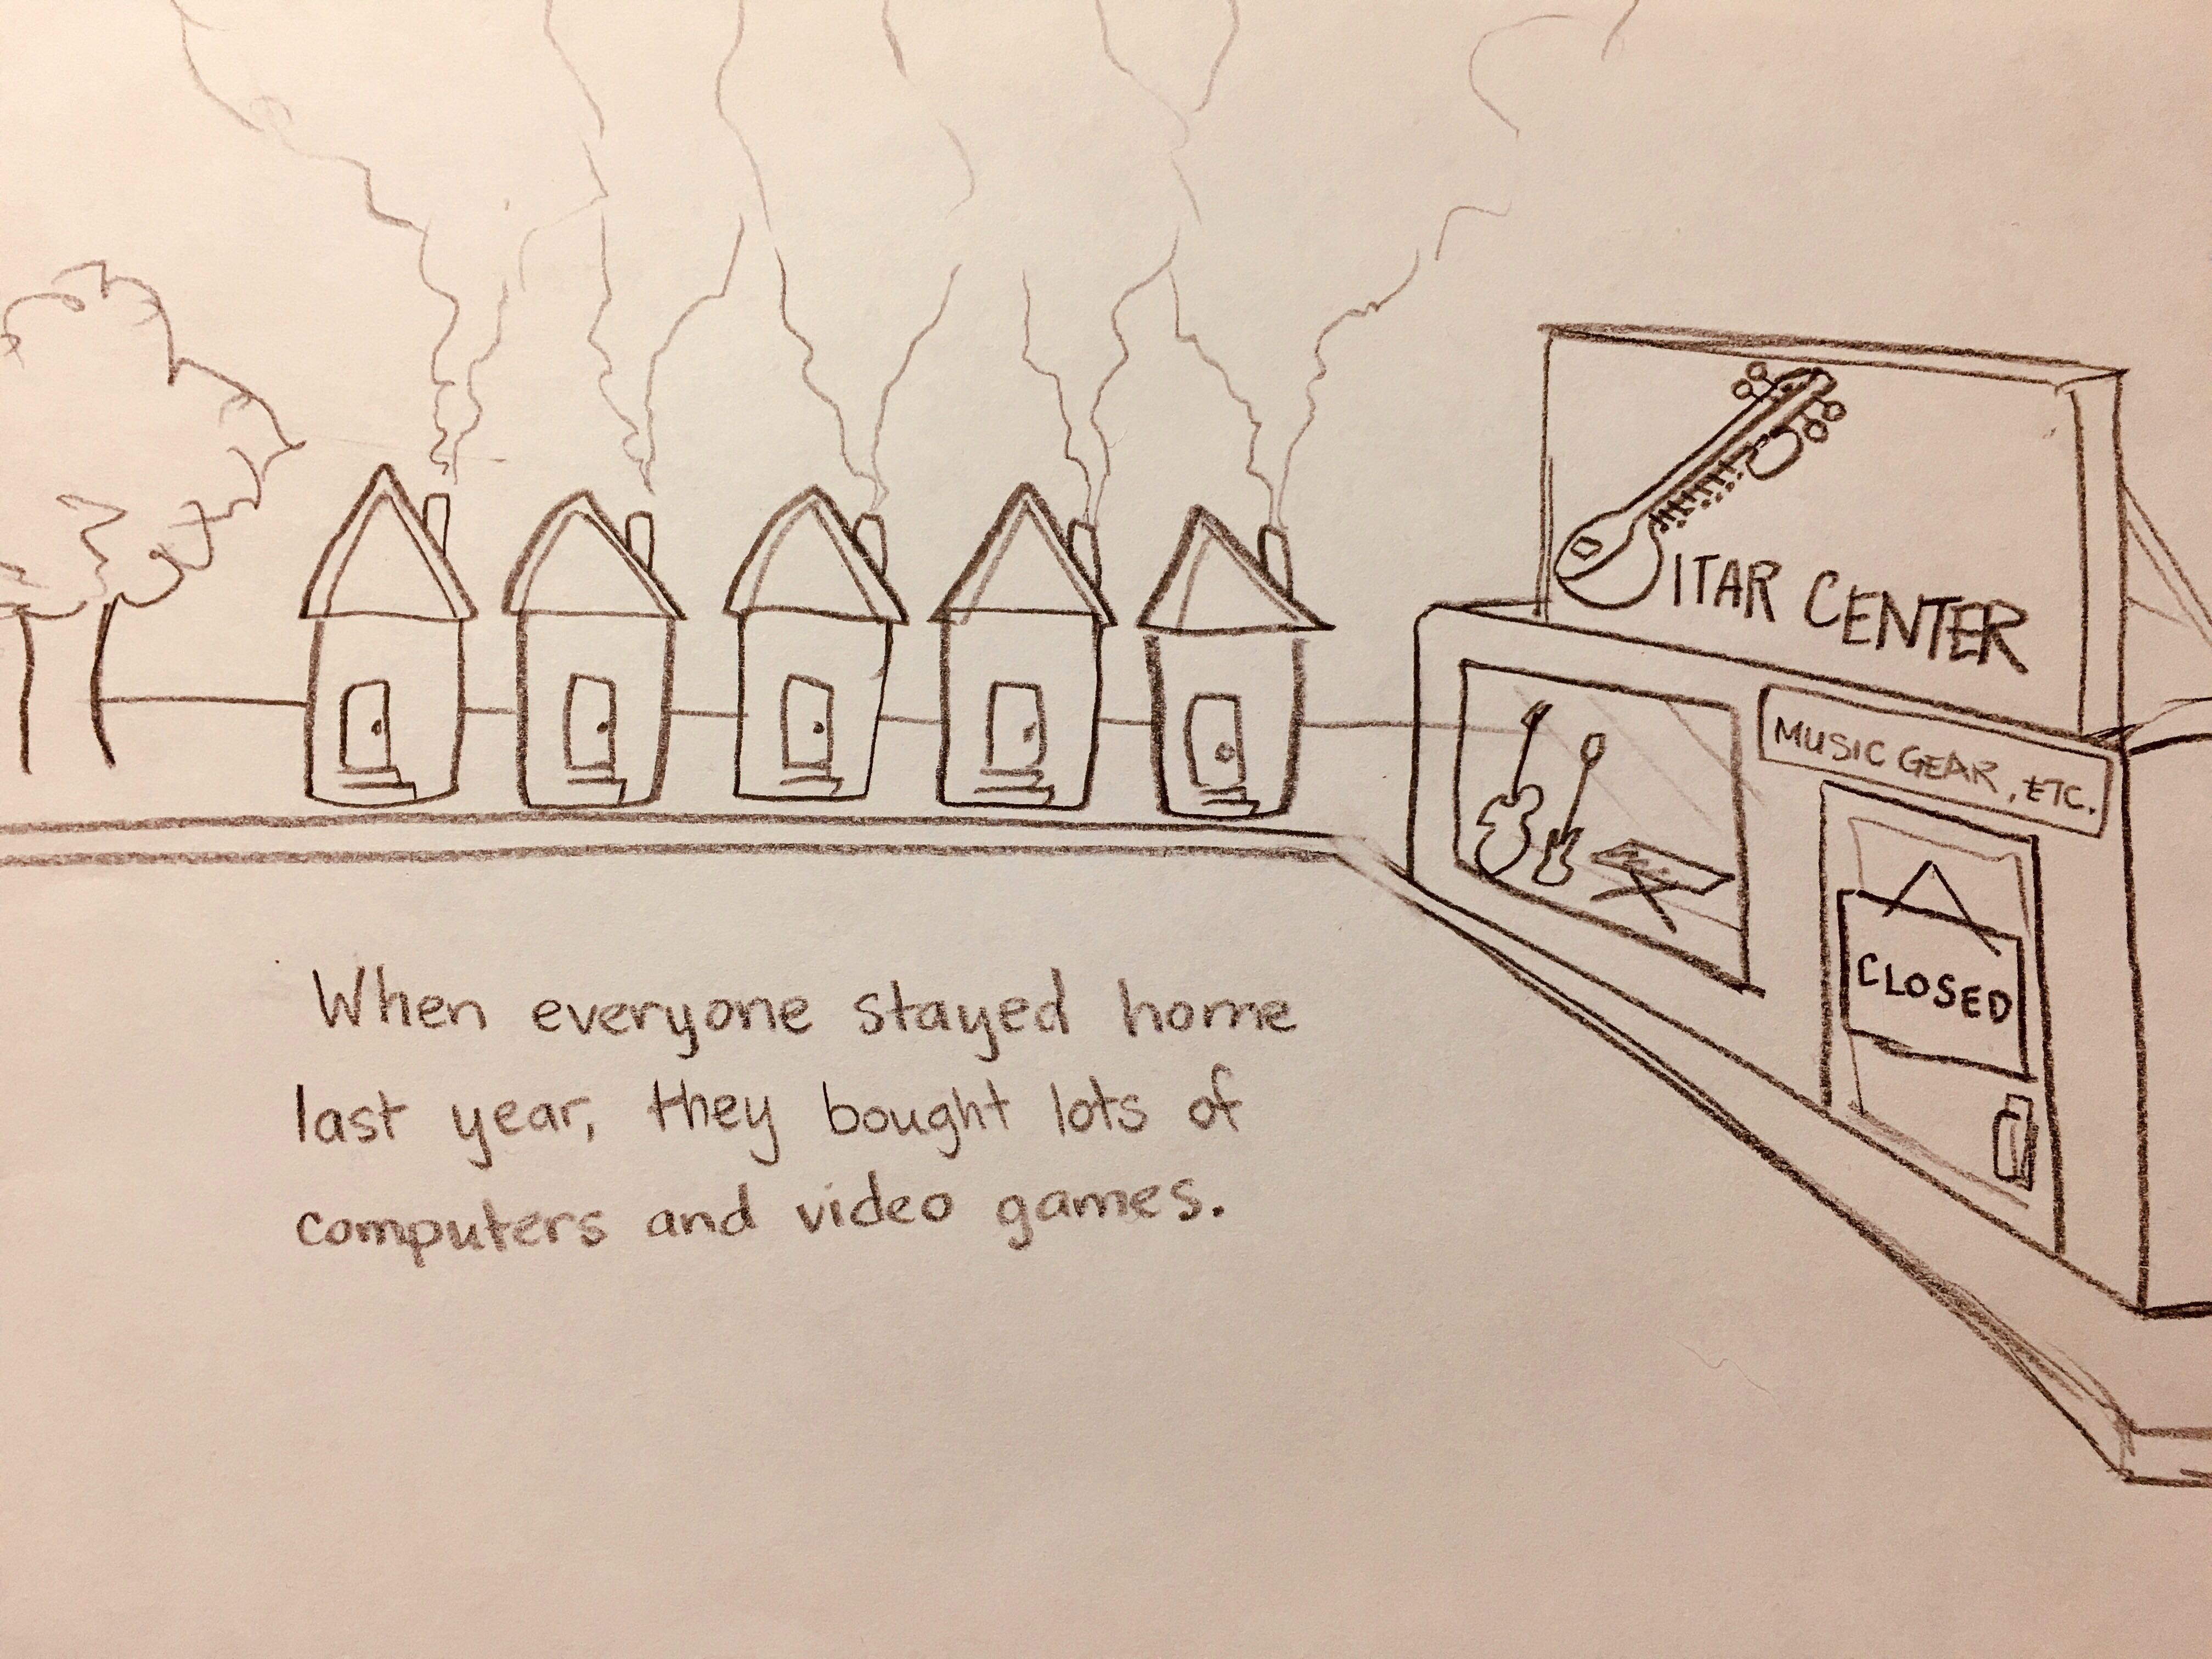 GUITAR CENTER
MUSIC GEAR, ETC.
CLOSED
When everyone stayed home
last year, they bought lots of
computers and video games.